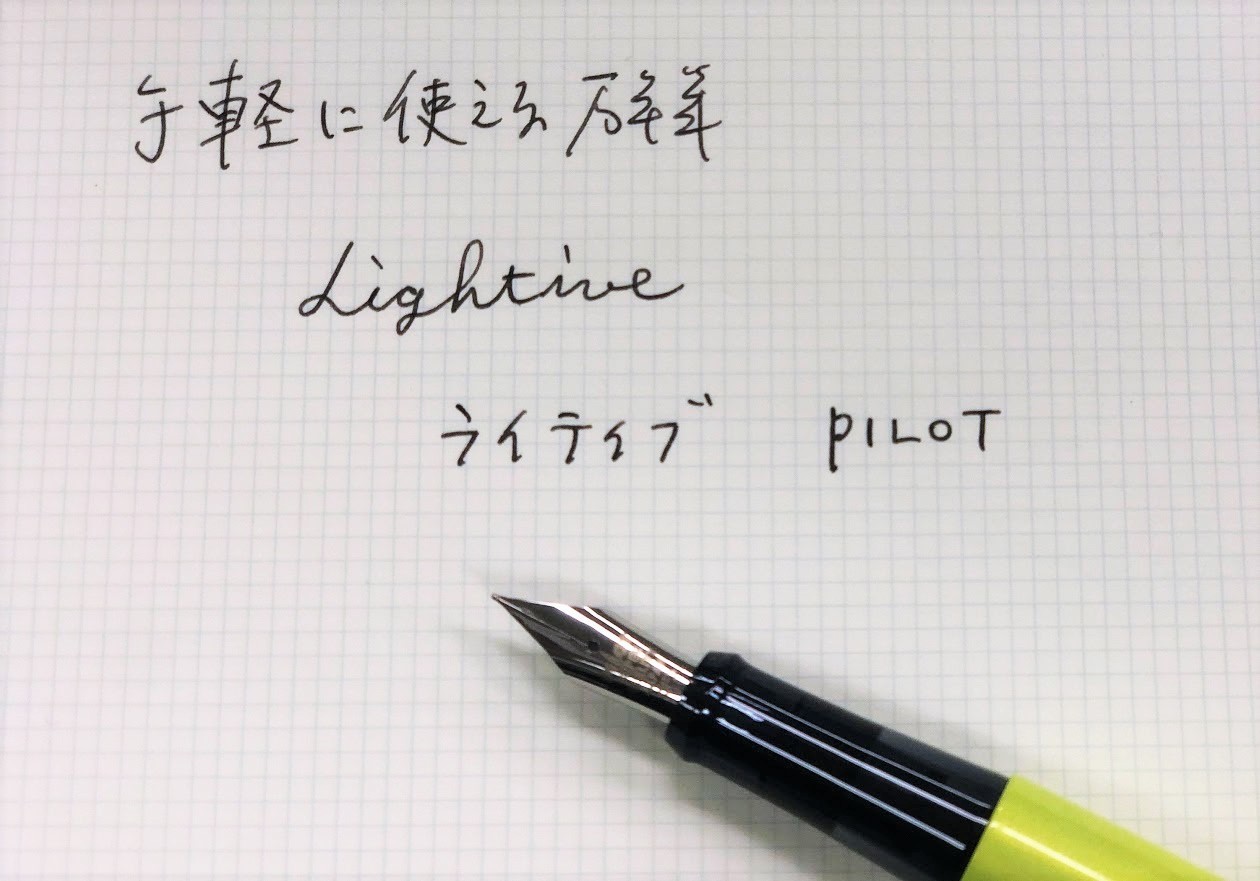 手軽に使える万年筆
Lightive
ライティブ PILOT